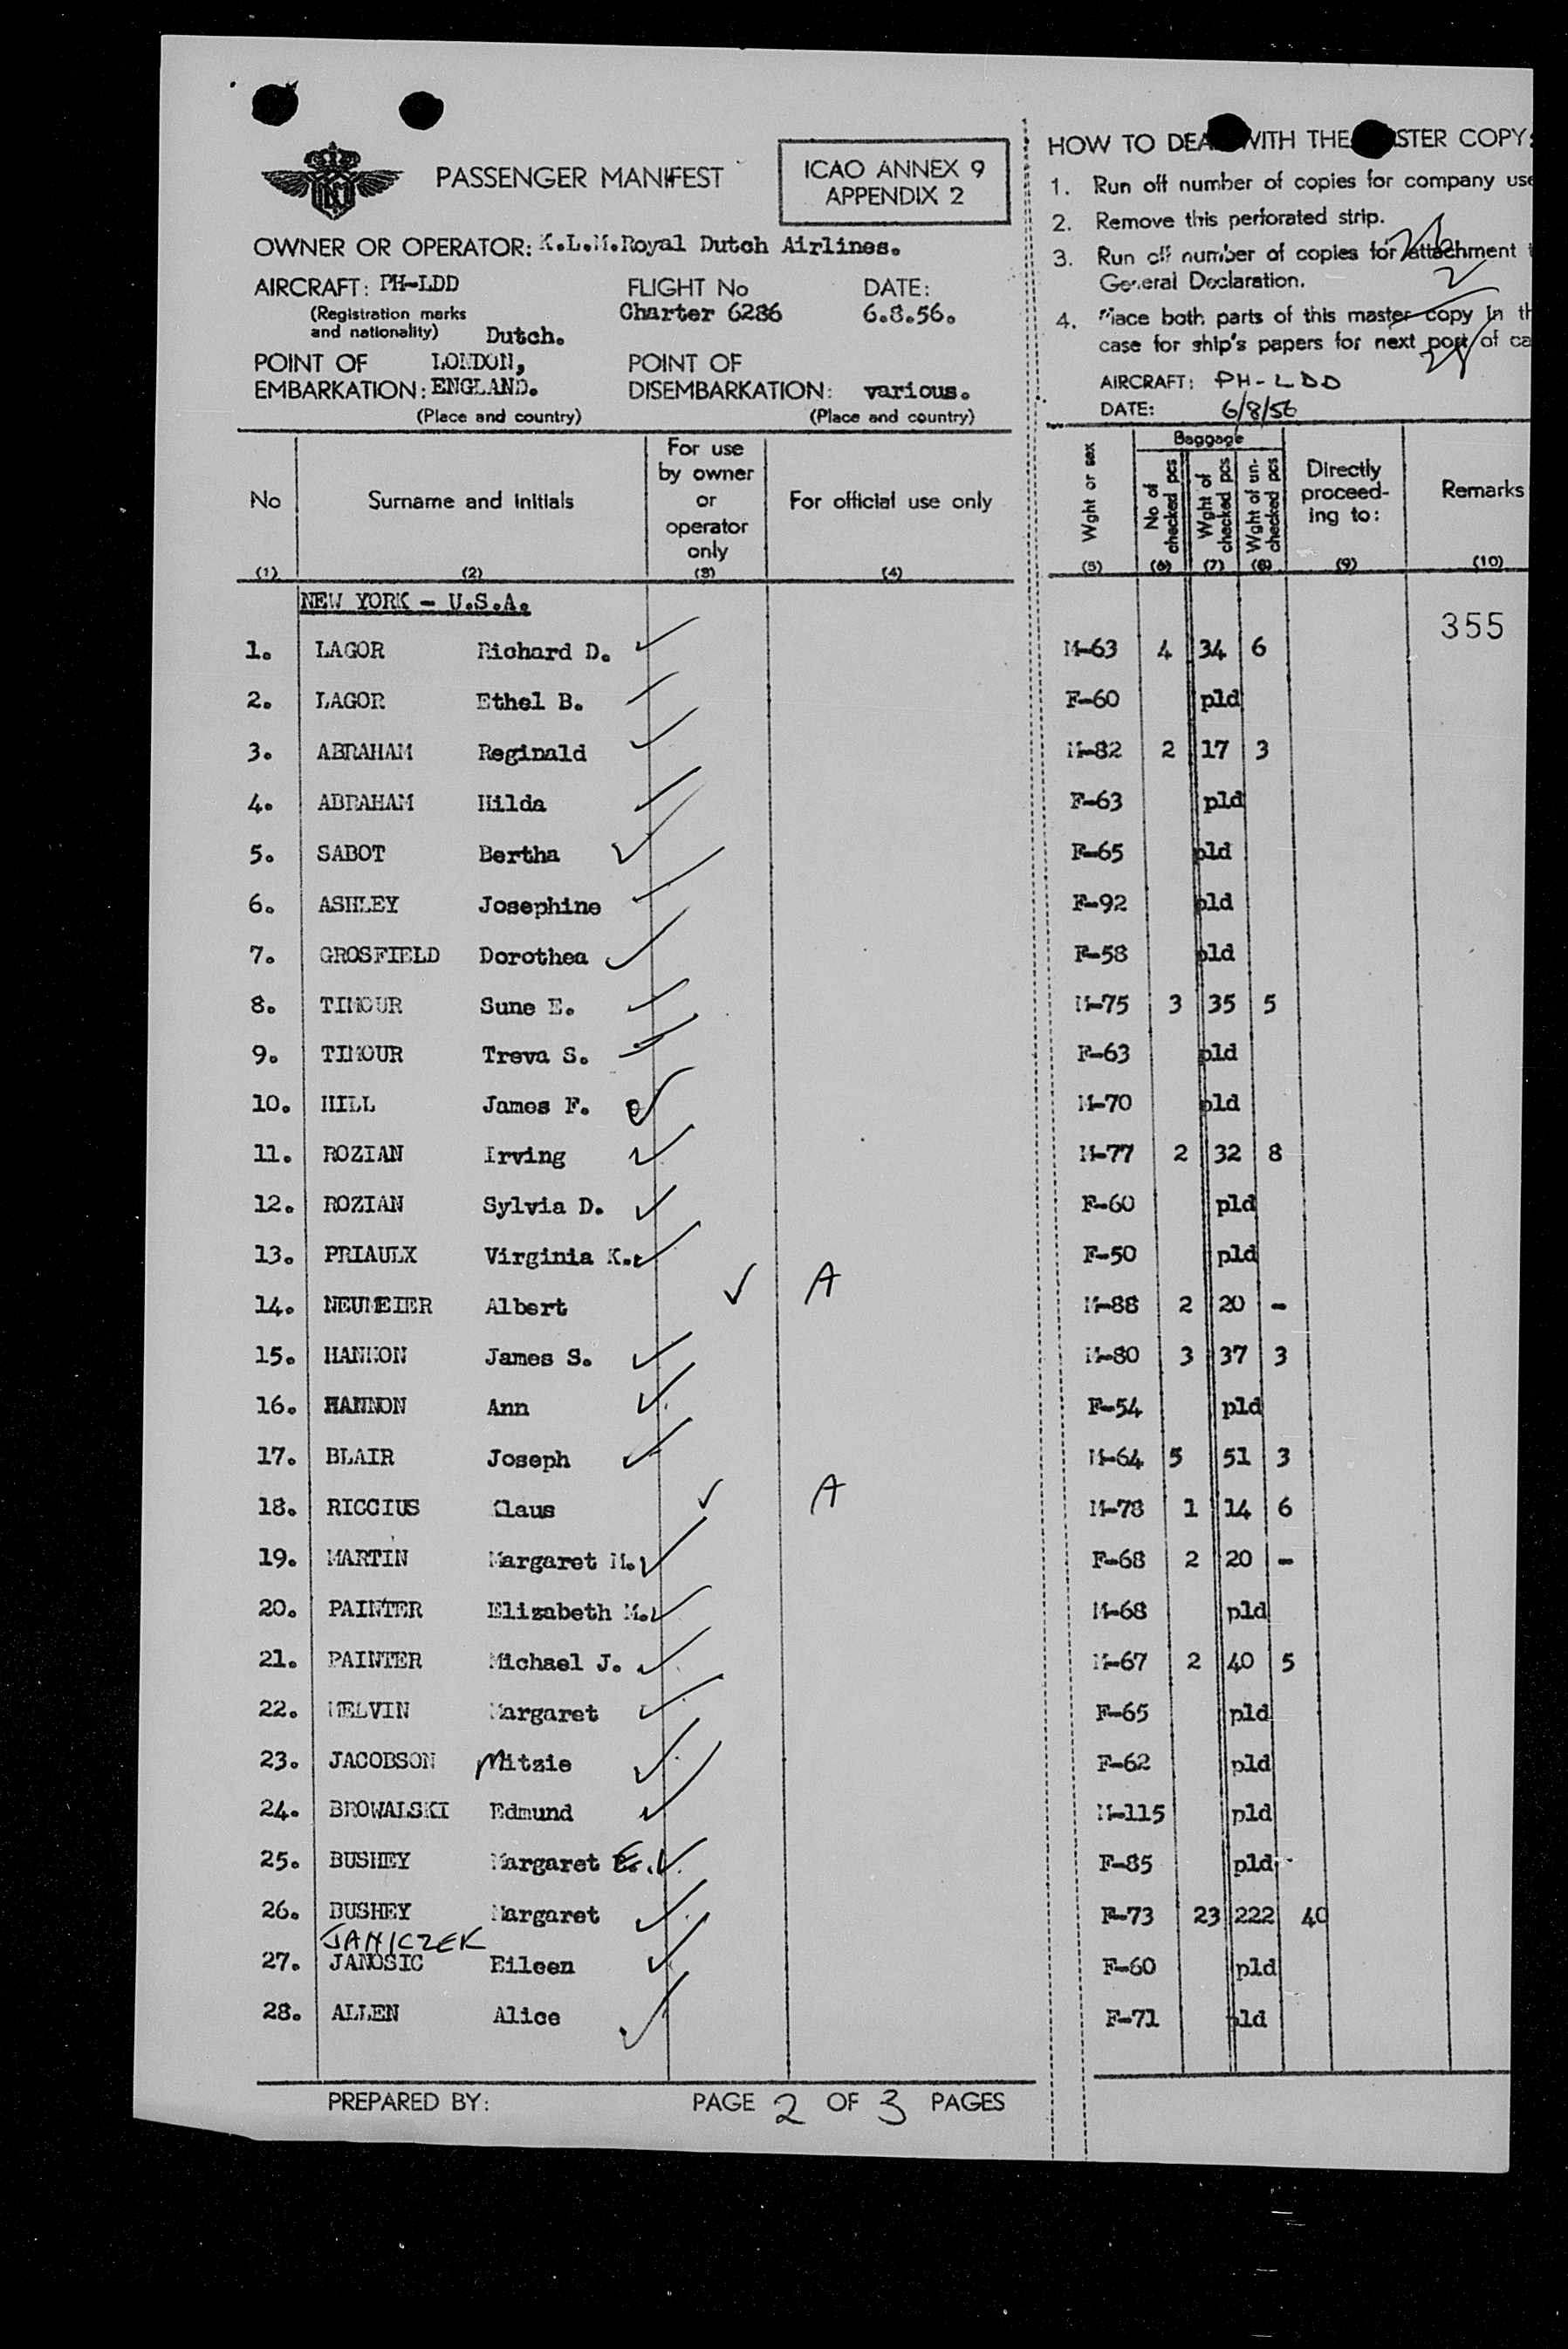 PASSENGER MANIFEST
ICAO ANNEX 9
APPENDIX 2
OWNER OR OPERATOR: K.L.M. Royal Dutch Airlines.
AIRCRAFT: PH-LDD FLIGHT No DATE:
(Registration marks Charter 6286 6.8.56.
and nationality) Dutch.
POINT OF LONDON, POINT OF
EMBARKATION: ENGLAND. DISEMBARKATION: various.
(Place and country) (Place and country)
HOW TO DEA WITH THE STER COPY:
1. Run off number of copies for company use
2. Remove this perforated strip.
3. Run off number of copies for attachment
General Declaration.
4. Place both parts of this master copy in th
case for ship's papers for next port of ca
AIRCRAFT: PH-LDD
DATE: 6/8/56
No Surname and initials For use by owner or operator only For official use only Wght or sex Baggage No of checked pcs Wght of checked pcs Wght of un-checked pcs Directly proceed-ing to: Remarks
(1) (2) (3) (4) (5) (6) (7) (8) (9) (10)
NEW YORK - U.S.A.
355
1. LAGOR Richard D. ✓ M-63 4 34 6
2. LAGOR Ethel B. ✓ F-60 pld
3. ABRAHAM Reginald ✓ M-82 2 17 3
4. ABRAHAM Hilda ✓ F-63 pld
5. SABOT Bertha ✓ F-65 pld
6. ASHLEY Josephine ✓ F-92 pld
7. GROSFIELD Dorothea ✓ F-58 pld
8. TIMOUR Sune E. ✓ M-75 3 35 5
9. TIMOUR Treva S. ✓ F-63 pld
10. HILL James F. ✓ M-70 pld
11. ROZIAN Irving ✓ M-77 2 32 8
12. ROZIAN Sylvia D. ✓ F-60 pld
13. PRIAULX Virginia K. ✓ F-50 pld
14. NEUMEIER Albert ✓ A M-88 2 20 -
15. HANNON James S. ✓ M-80 3 37 3
16. HANNON Ann ✓ F-54 pld
17. BLAIR Joseph ✓ M-64 5 51 3
18. RICCIUS Claus ✓ A M-78 1 14 6
19. MARTIN Margaret M. ✓ F-68 2 20 -
20. PAINTER Elizabeth M. ✓ M-68 pld
21. PAINTER Michael J. ✓ M-67 2 40 5
22. MELVIN Margaret ✓ F-65 pld
23. JACOBSON Mitzie ✓ F-62 pld
24. BROWALSKI Edmund ✓ M-115 pld
25. BUSHEY Margaret E. ✓ F-85 pld
26. BUSHEY Margaret ✓ F-73 23 222 40
JANICZEK
27. JANOSIC Eileen ✓ F-60 pld
28. ALLEN Alice ✓ F-71 pld
PREPARED BY: PAGE 2 OF 3 PAGES